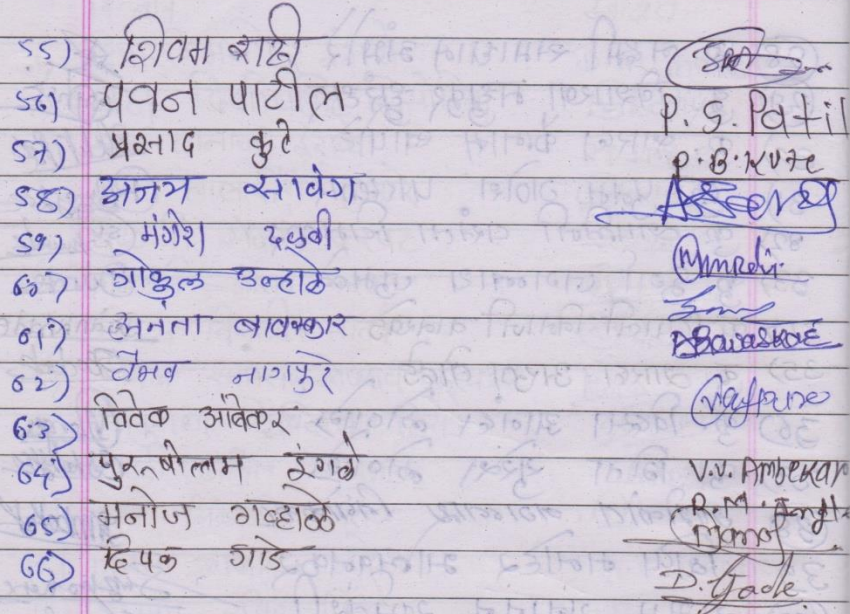 55) शिवम राठी
56) पवन पाटील P. S. Patil
57) प्रसाद कुटे P. B. Kute
58) अजय सावंग
59) मंगेश दळवी
60) गोकुल उन्हाळे
61) अनंता बावस्कार ABavaskar
62) वैभव नागपुरे
63) विवेक आंबेकर
64) पुरुषोत्तम इंगळे V.V. Ambekar
65) मनोज गव्हाळे R. M. Ingle
Manoj
66) दिपक गाडे D. Gade